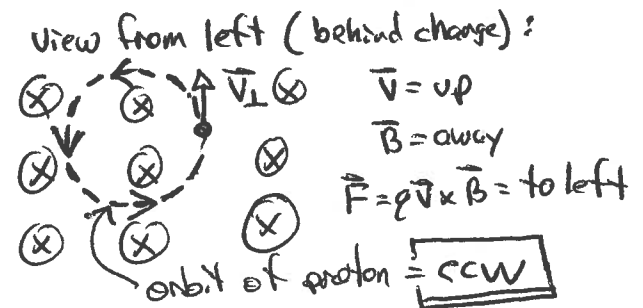 view from left (behind change):
V⃗⊥ V̄ = up
B̄ = away
F⃗ = qV̄ x B̄ = to left
orbit of proton = CCW